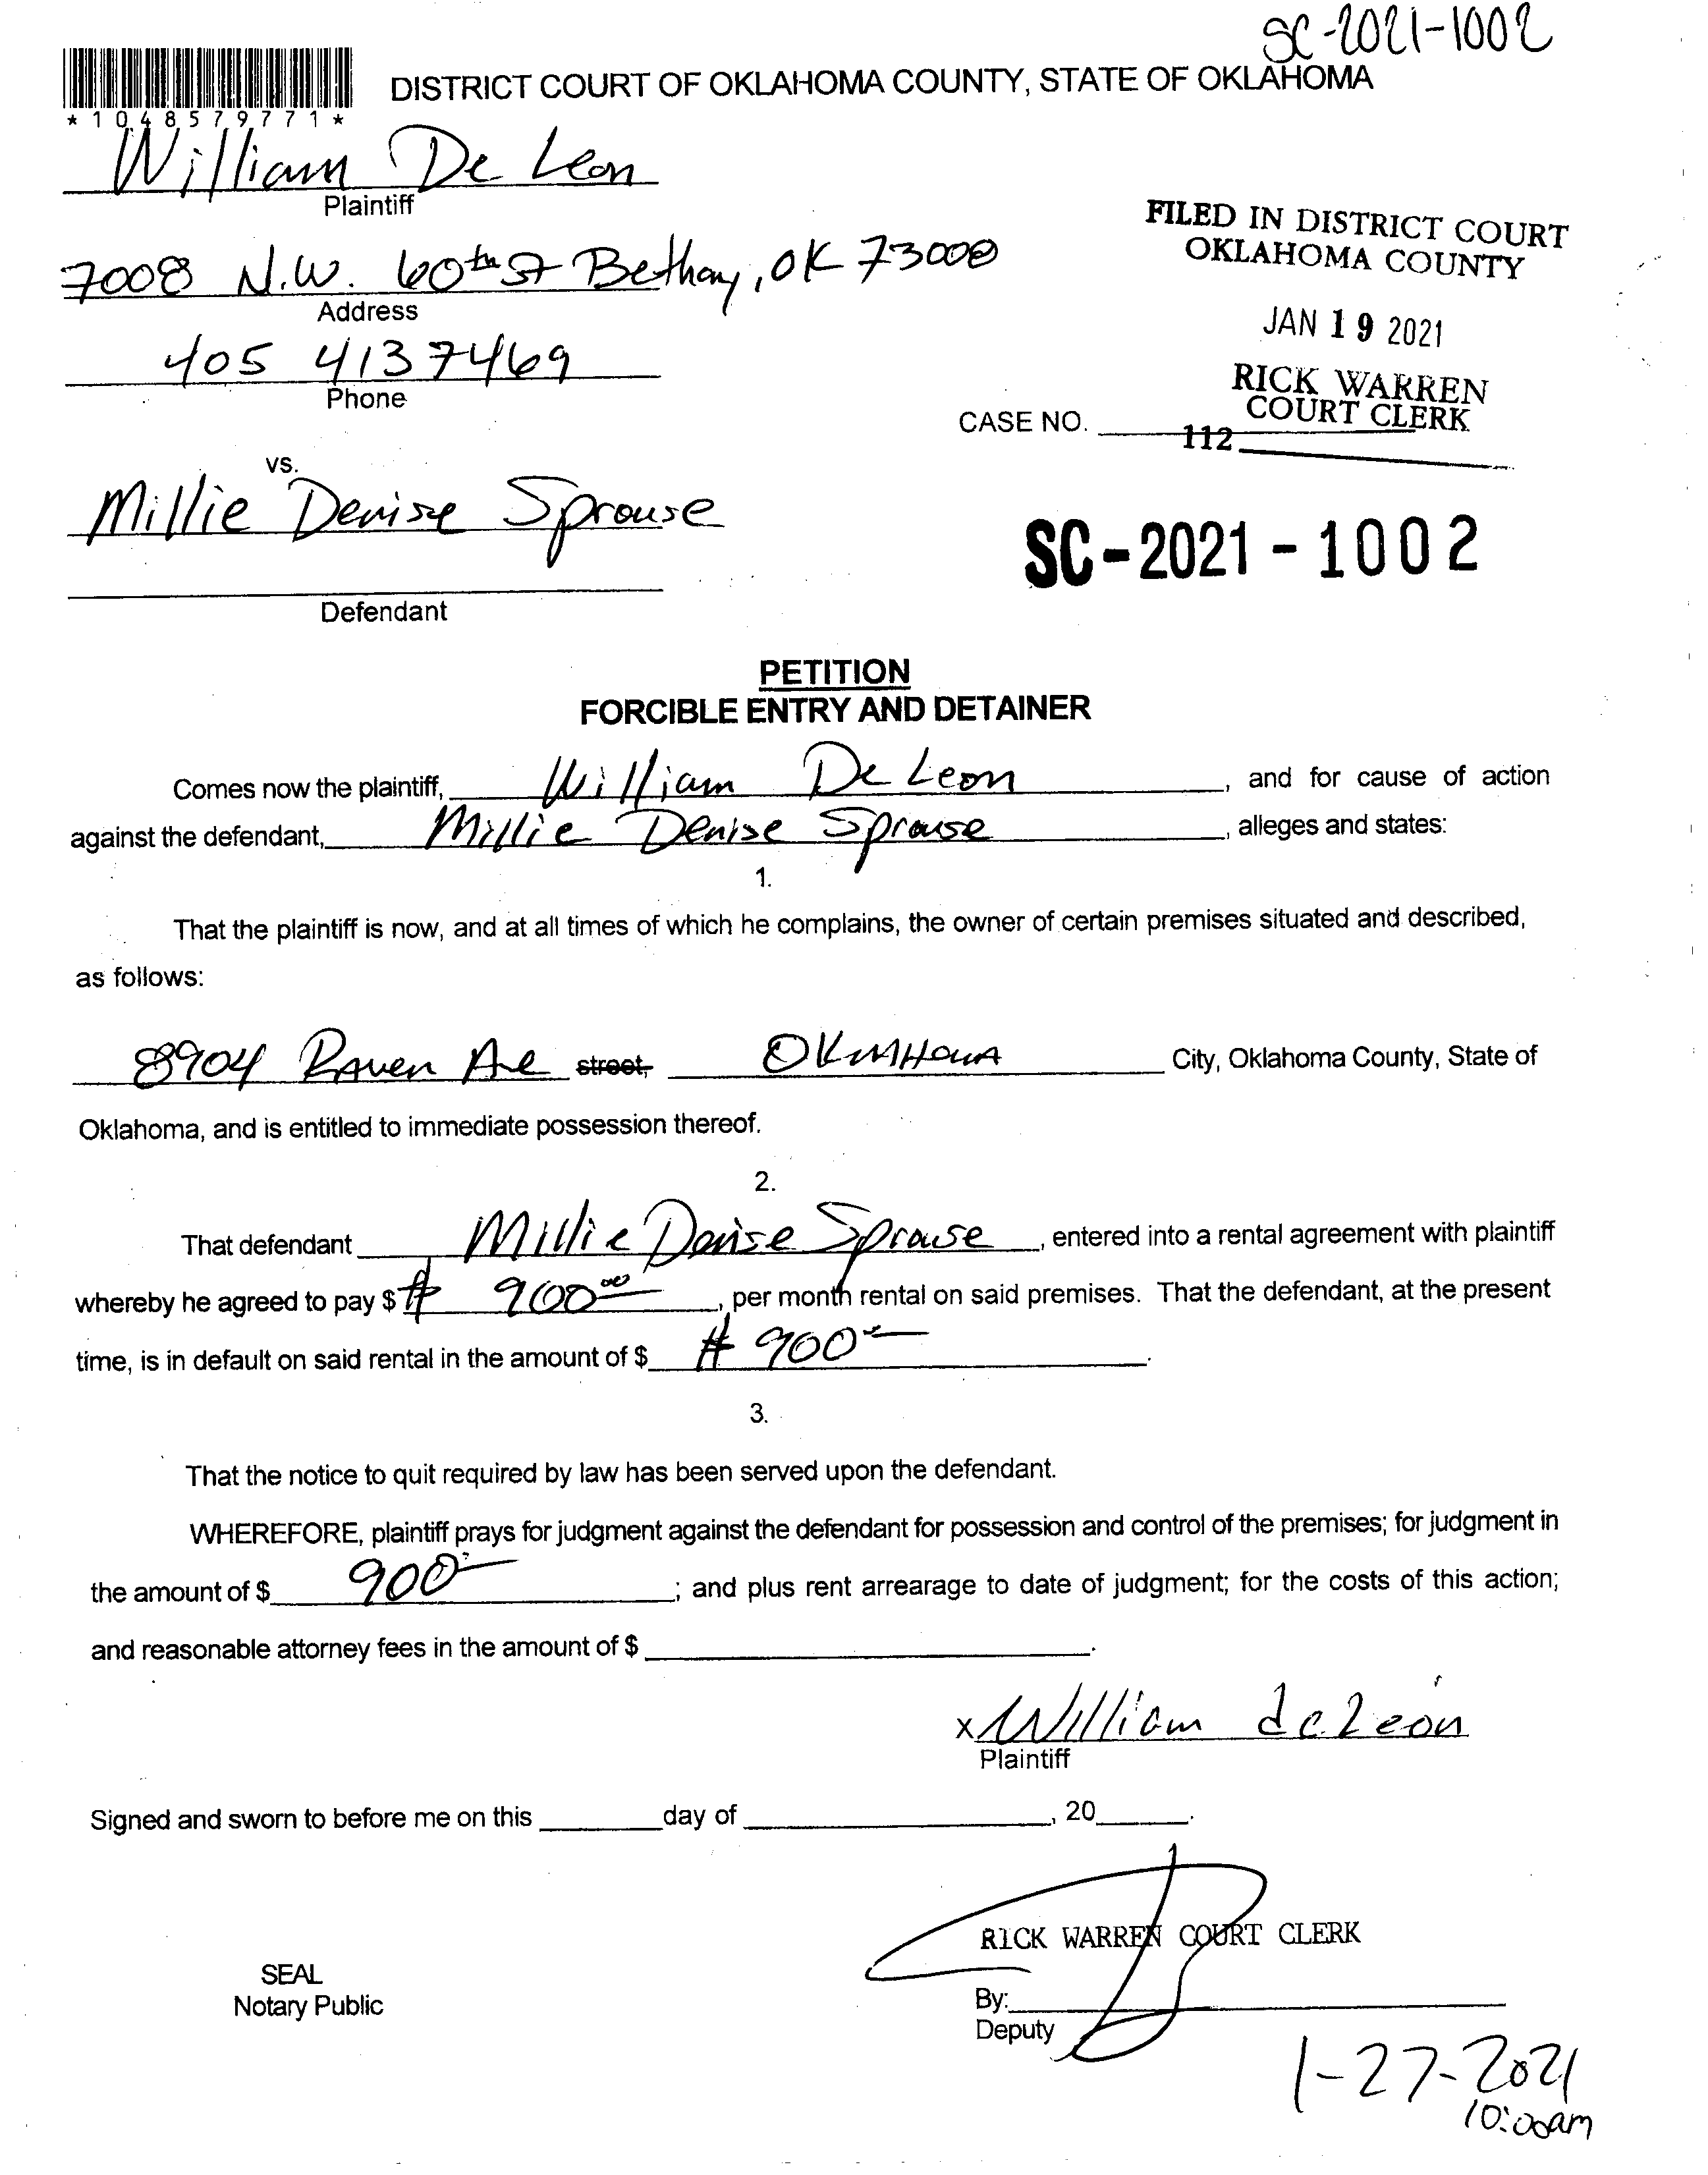 SC-2021-1002
*1048579771*
DISTRICT COURT OF OKLAHOMA COUNTY, STATE OF OKLAHOMA
William De Leon
Plaintiff
7008 N.W. 60th St Bethany, OK 73008
Address
405 4137469
Phone
FILED IN DISTRICT COURT
OKLAHOMA COUNTY
JAN 19 2021
RICK WARREN
COURT CLERK
CASE NO.
112
vs.
Millie Denise Sprouse
Defendant
SC-2021-1002
PETITION
FORCIBLE ENTRY AND DETAINER
Comes now the plaintiff, William De Leon, and for cause of action
against the defendant, Millie Denise Sprouse, alleges and states:
1.
That the plaintiff is now, and at all times of which he complains, the owner of certain premises situated and described,
as follows:
8904 Raven Ave street, Oklahoma City, Oklahoma County, State of
Oklahoma, and is entitled to immediate possession thereof.
2.
That defendant Millie Denise Sprouse, entered into a rental agreement with plaintiff
whereby he agreed to pay $ # 900 00, per month rental on said premises. That the defendant, at the present
time, is in default on said rental in the amount of $ # 900.
3.
That the notice to quit required by law has been served upon the defendant.
WHEREFORE, plaintiff prays for judgment against the defendant for possession and control of the premises; for judgment in
the amount of $ 900; and plus rent arrearage to date of judgment; for the costs of this action;
and reasonable attorney fees in the amount of $ .
x William de Leon
Plaintiff
Signed and sworn to before me on this day of , 20 .
RICK WARREN COURT CLERK
SEAL
Notary Public
By:
Deputy
1-27-2021
10:00am